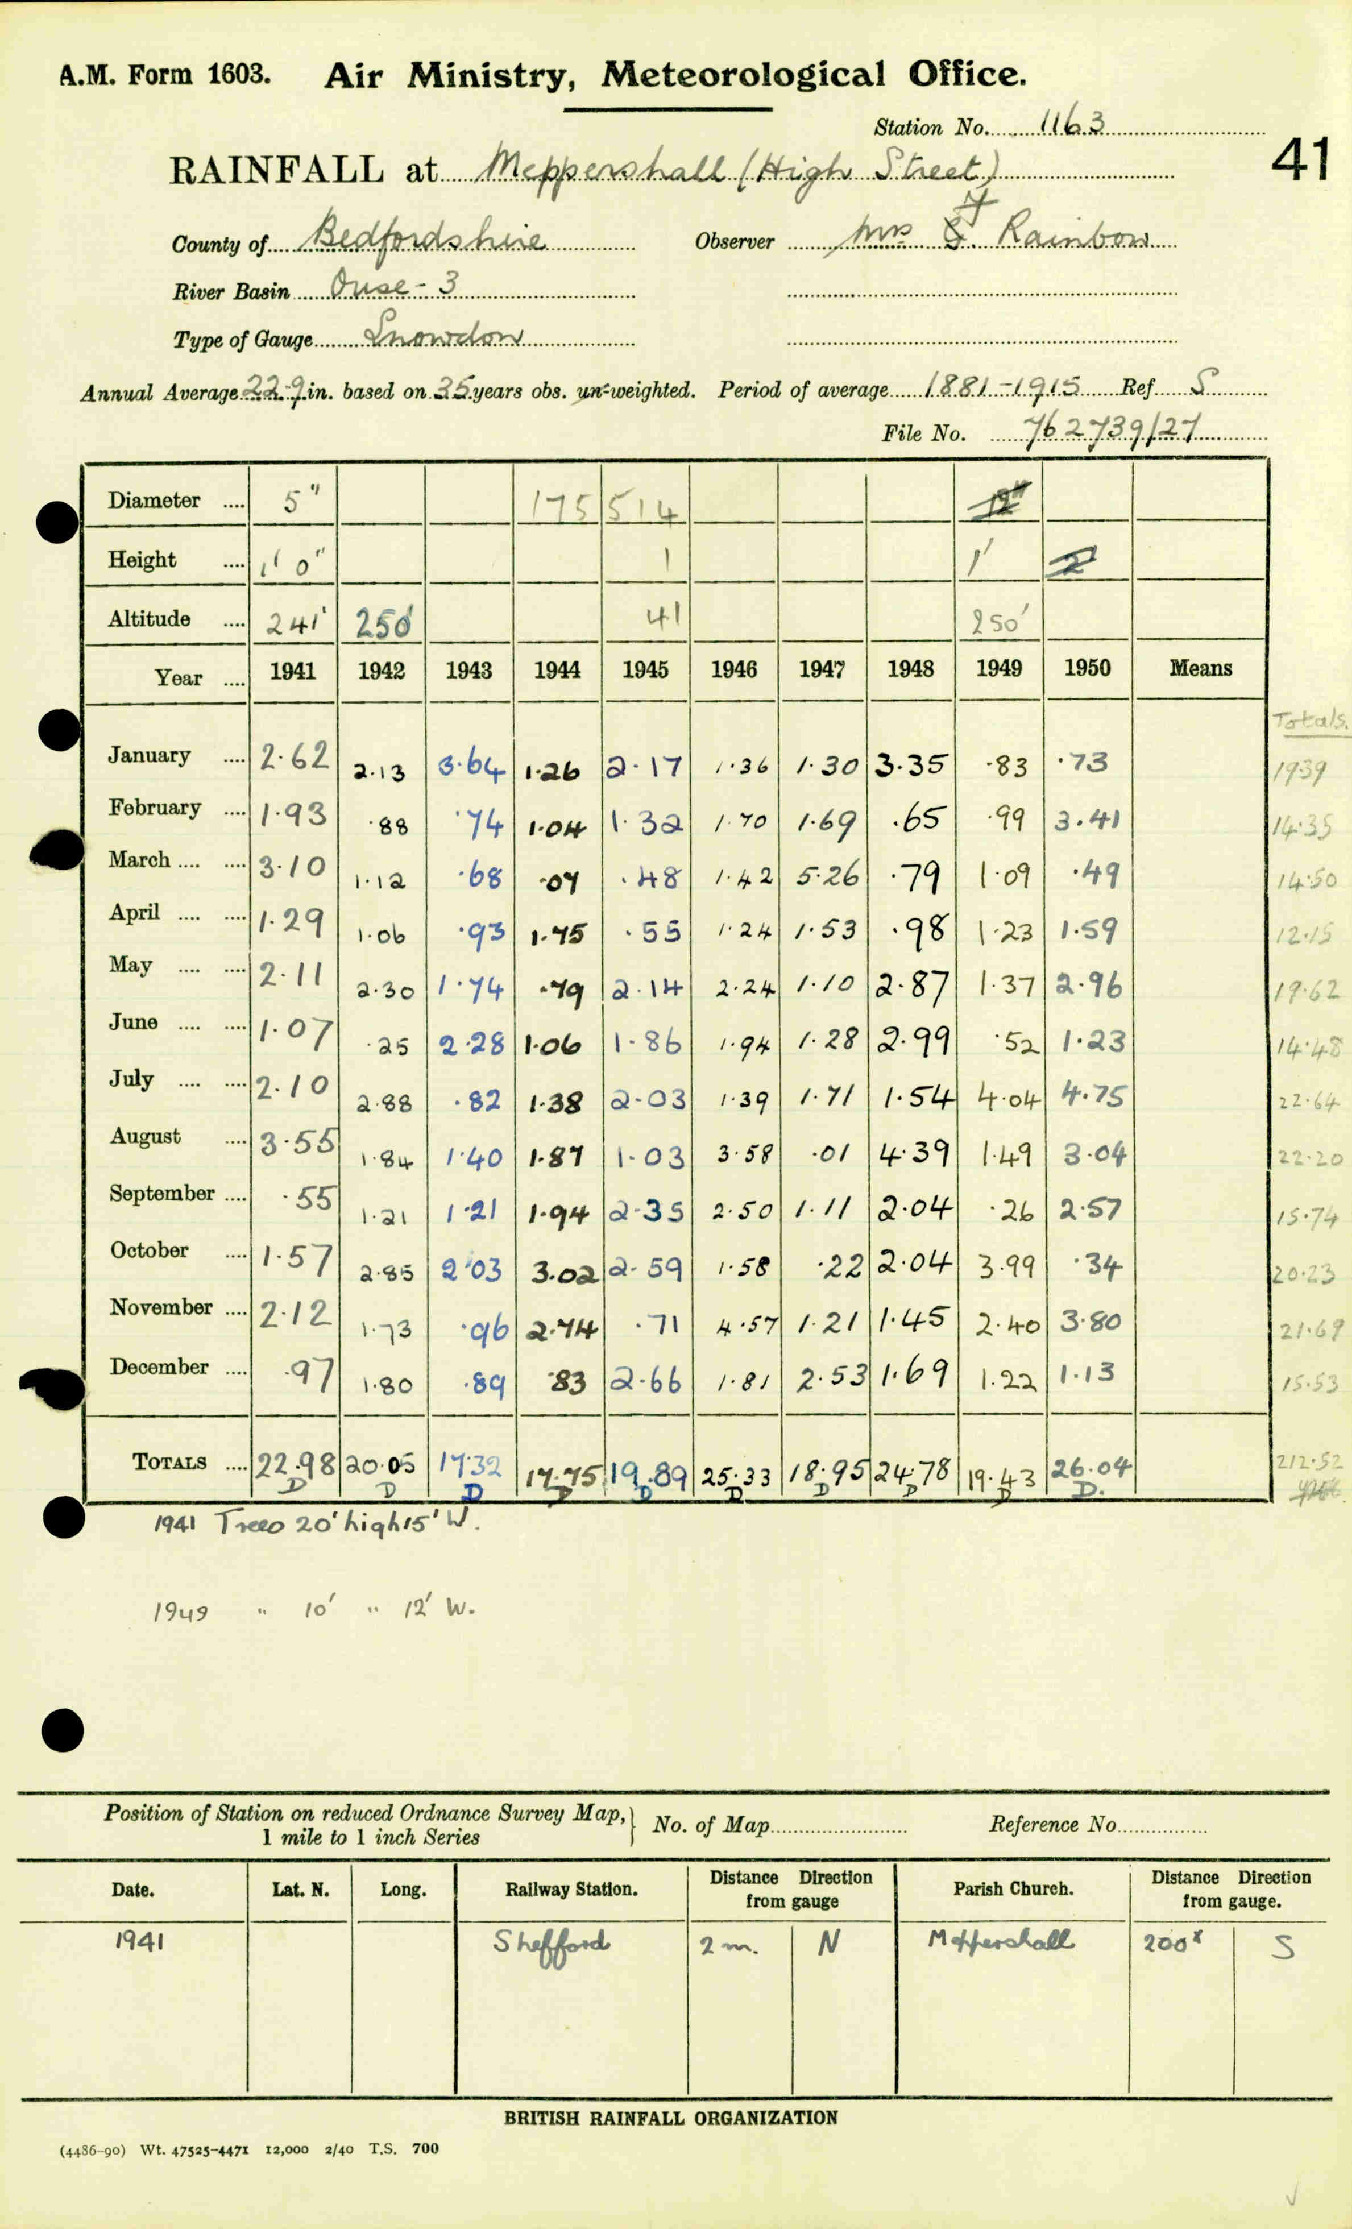 A.M. Form 1603. Air Ministry, Meteorological Office.
Station No. 1163
41
RAINFALL at Meppershall (High Street)
County of Bedfordshire Observer Mrs Rainbow
River Basin Ouse - 3
Type of Gauge Snowdon
Annual Average 22.9 in. based on 35 years obs. un-weighted. Period of average 1881-1915 Ref S
File No. 762739/27
Diameter .... 5" 175 514 12"
Height .... 1' 0" 1 1' 2
Altitude .... 241' 250' 41 250'
Year .... 1941 1942 1943 1944 1945 1946 1947 1948 1949 1950 Means
Totals.
January .... 2.62 2.13 3.64 1.26 2.17 1.36 1.30 3.35 .83 .73 19.39
February .... 1.93 .88 .74 1.04 1.32 1.70 1.69 .65 .99 3.41 14.35
March .... .... 3.10 1.12 .68 .07 .48 1.42 5.26 .79 1.09 .49 14.50
April .... .... 1.29 1.06 .93 1.75 .55 1.24 1.53 .98 1.23 1.59 12.15
May .... .... 2.11 2.30 1.74 .79 2.14 2.24 1.10 2.87 1.37 2.96 19.62
June .... .... 1.07 .25 2.28 1.06 1.86 1.94 1.28 2.99 .52 1.23 14.48
July .... .... 2.10 2.88 .82 1.38 2.03 1.39 1.71 1.54 4.04 4.75 22.64
August .... 3.55 1.84 1.40 1.87 1.03 3.58 .01 4.39 1.49 3.04 22.20
September .... .55 1.21 1.21 1.94 2.35 2.50 1.11 2.04 .26 2.57 15.74
October .... 1.57 2.85 2.03 3.02 2.59 1.58 .22 2.04 3.99 .34 20.23
November .... 2.12 1.73 .96 2.74 .71 4.57 1.21 1.45 2.40 3.80 21.69
December .... .97 1.80 .89 .83 2.66 1.81 2.53 1.69 1.22 1.13 15.53
TOTALS .... 22.98 20.05 17.32 17.75 19.89 25.33 18.95 24.78 19.43 26.04 212.52
D D D D D D D D D D.
1941 Trees 20' high 15' W.
1949 " 10' " 12' W.
Position of Station on reduced Ordnance Survey Map, 1 mile to 1 inch Series } No. of Map Reference No
Date. Lat. N. Long. Railway Station. Distance Direction from gauge Parish Church. Distance Direction from gauge.
1941 Shefford 2 m. N Meppershall 200x S
BRITISH RAINFALL ORGANIZATION
(4486-90) Wt. 47525-4471 12,000 2/40 T.S. 700